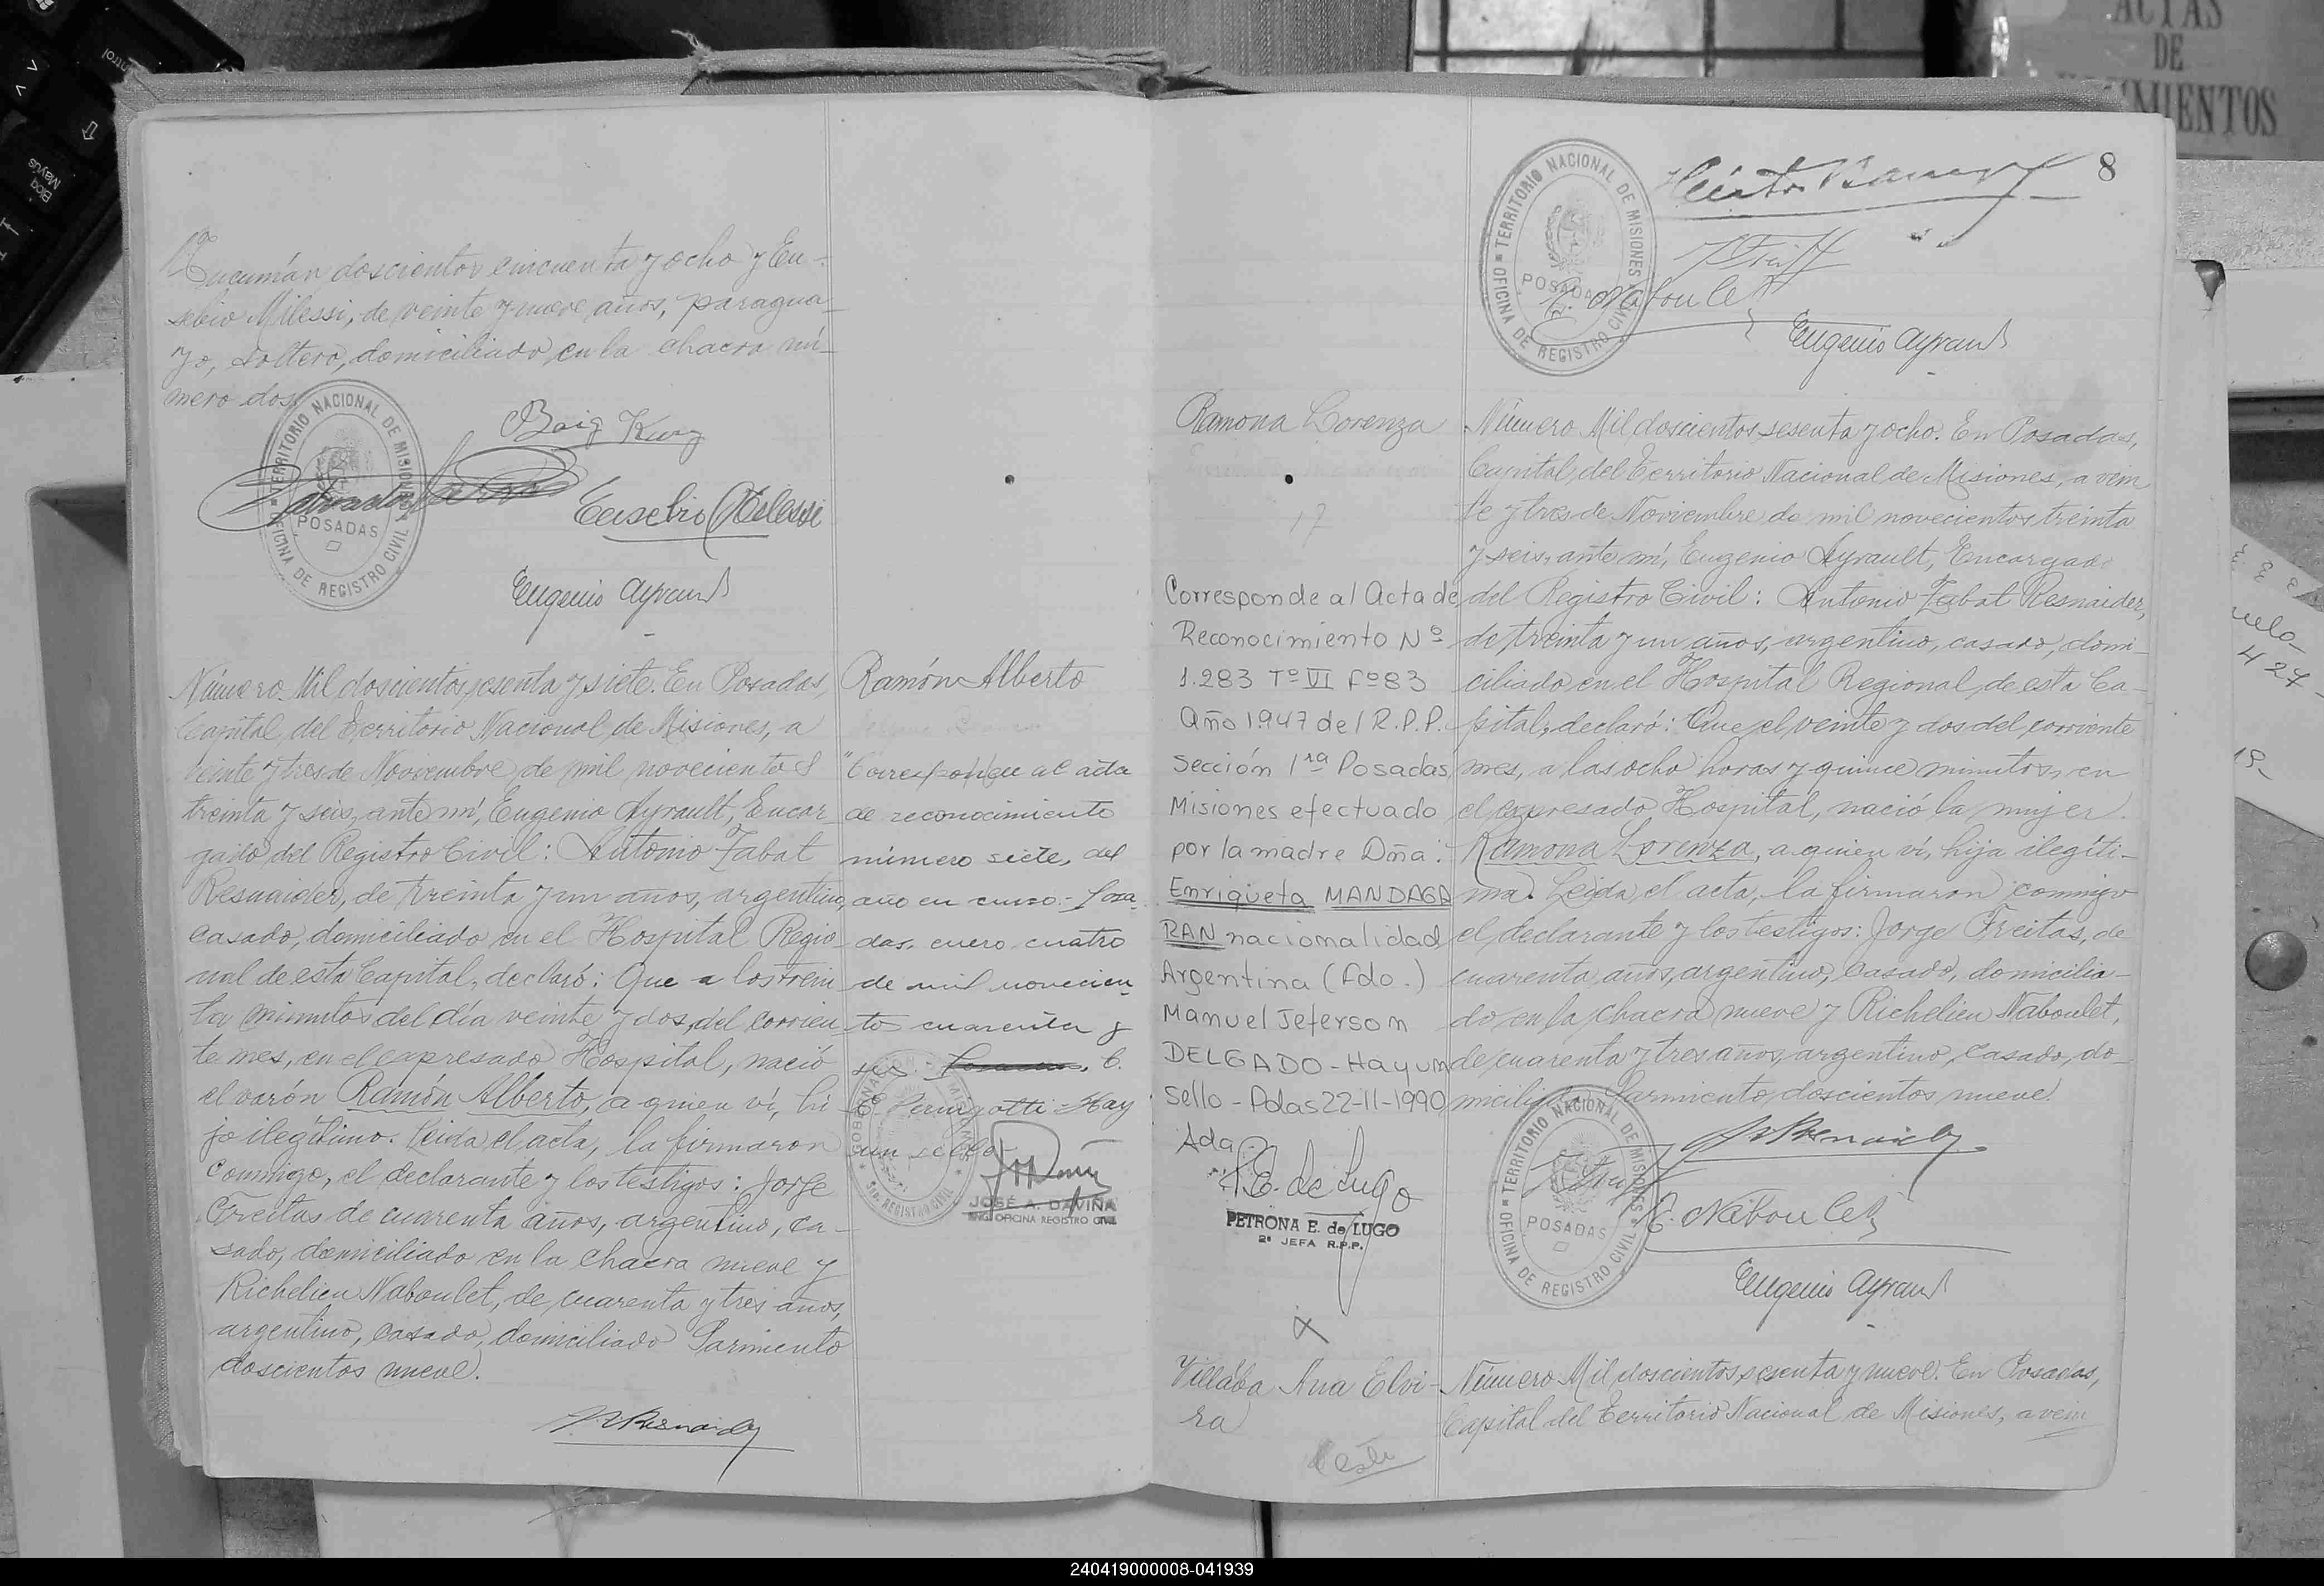 Tucumán doscientos cincuenta y ocho y Eu-
sebio Milessi, de veinte y nueve años, paragua-
yo, soltero, domiciliado en la chacra nú-
mero dos.
TERRITORIO NACIONAL DE MISIONES
OFICINA DE REGISTRO CIVIL
POSADAS
Eusebio Milessi
Eugenio Ayrault
Número Mil doscientos sesenta y siete. En Posadas,
Capital del Territorio Nacional de Misiones, a
veinte y tres de Noviembre de mil novecientos
treinta y seis, ante mí, Eugenio Ayrault, Encar-
gado del Registro Civil: Antonio Zabat
Resnaider, de treinta y un años, argentino,
casado, domiciliado en el Hospital Regio-
nal de esta Capital, declaró: Que a los trein-
ta minutos del día veinte y dos del corrien-
te mes, en el expresado Hospital, nació
el varón Ramón Alberto, a quien ví, hi-
jo ilegítimo. Leida el acta, la firmaron
conmigo, el declarante y los testigos: Jorge
Freitas de cuarenta años, argentino, ca-
sado, domiciliado en la chacra nueve y
Richelieu Naboulet, de cuarenta y tres años,
argentino, casado, domiciliado Sarmiento
doscientos nueve.
Ramón Alberto
"Corresponde al acta
de reconocimiento
número siete, del
año en curso.- Posa-
das, enero cuatro
de mil novecien-
tos cuarenta y
Hay
un sello
JOSÉ A. DAVIÑA
ENC. OFICINA REGISTRO CIVIL
8
TERRITORIO NACIONAL DE MISIONES
OFICINA DE REGISTRO CIVIL
POSADAS
E. Naboulet
Eugenio Ayrault
Ramona Lorenza
17
Corresponde al Acta de
Reconocimiento Nº
1.283 Tº VI Fº 83
Año 1947 del R.P.P.
Sección 1ra Posadas
Misiones efectuado
por la madre Dña:
Enriqueta MANDAGA
RAN nacionalidad
Argentina (Fdo.)
Manuel Jeferson
DELGADO - Hay un
sello - Pdas 22-11-1990
Ada
P.E. de Lugo
PETRONA E. de LUGO
2ª JEFA R.P.P.
Número Mil doscientos sesenta y ocho. En Posadas,
Capital del Territorio Nacional de Misiones, a vein
te y tres de Noviembre de mil novecientos treinta
y seis, ante mí, Eugenio Ayrault, Encargado
del Registro Civil: Antonio Zabat Resnaider,
de treinta y un años, argentino, casado, domi-
ciliado en el Hospital Regional de esta Ca-
pital, declaró: Que el veinte y dos del corriente
mes, a las ocho horas y quince minutos, en
el expresado Hospital, nació la mujer
Ramona Lorenza, a quien ví, hija ilegíti-
ma. Leida el acta, la firmaron conmigo
el declarante y los testigos: Jorge Freitas, de
cuarenta años, argentino, casado, domicilia-
do en la chacra nueve y Richelieu Naboulet,
de cuarenta y tres años, argentino, casado, do-
miciliado Sarmiento doscientos nueve.
TERRITORIO NACIONAL DE MISIONES
OFICINA DE REGISTRO CIVIL
POSADAS
E. Naboulet
Eugenio Ayrault
Villalba Ana Elvi-
ra
Número Mil doscientos sesenta y nueve. En Posadas,
Capital del Territorio Nacional de Misiones, a vein
ACTAS
DE
NACIMIENTOS
Bloq
Mayús
240419000008-041939